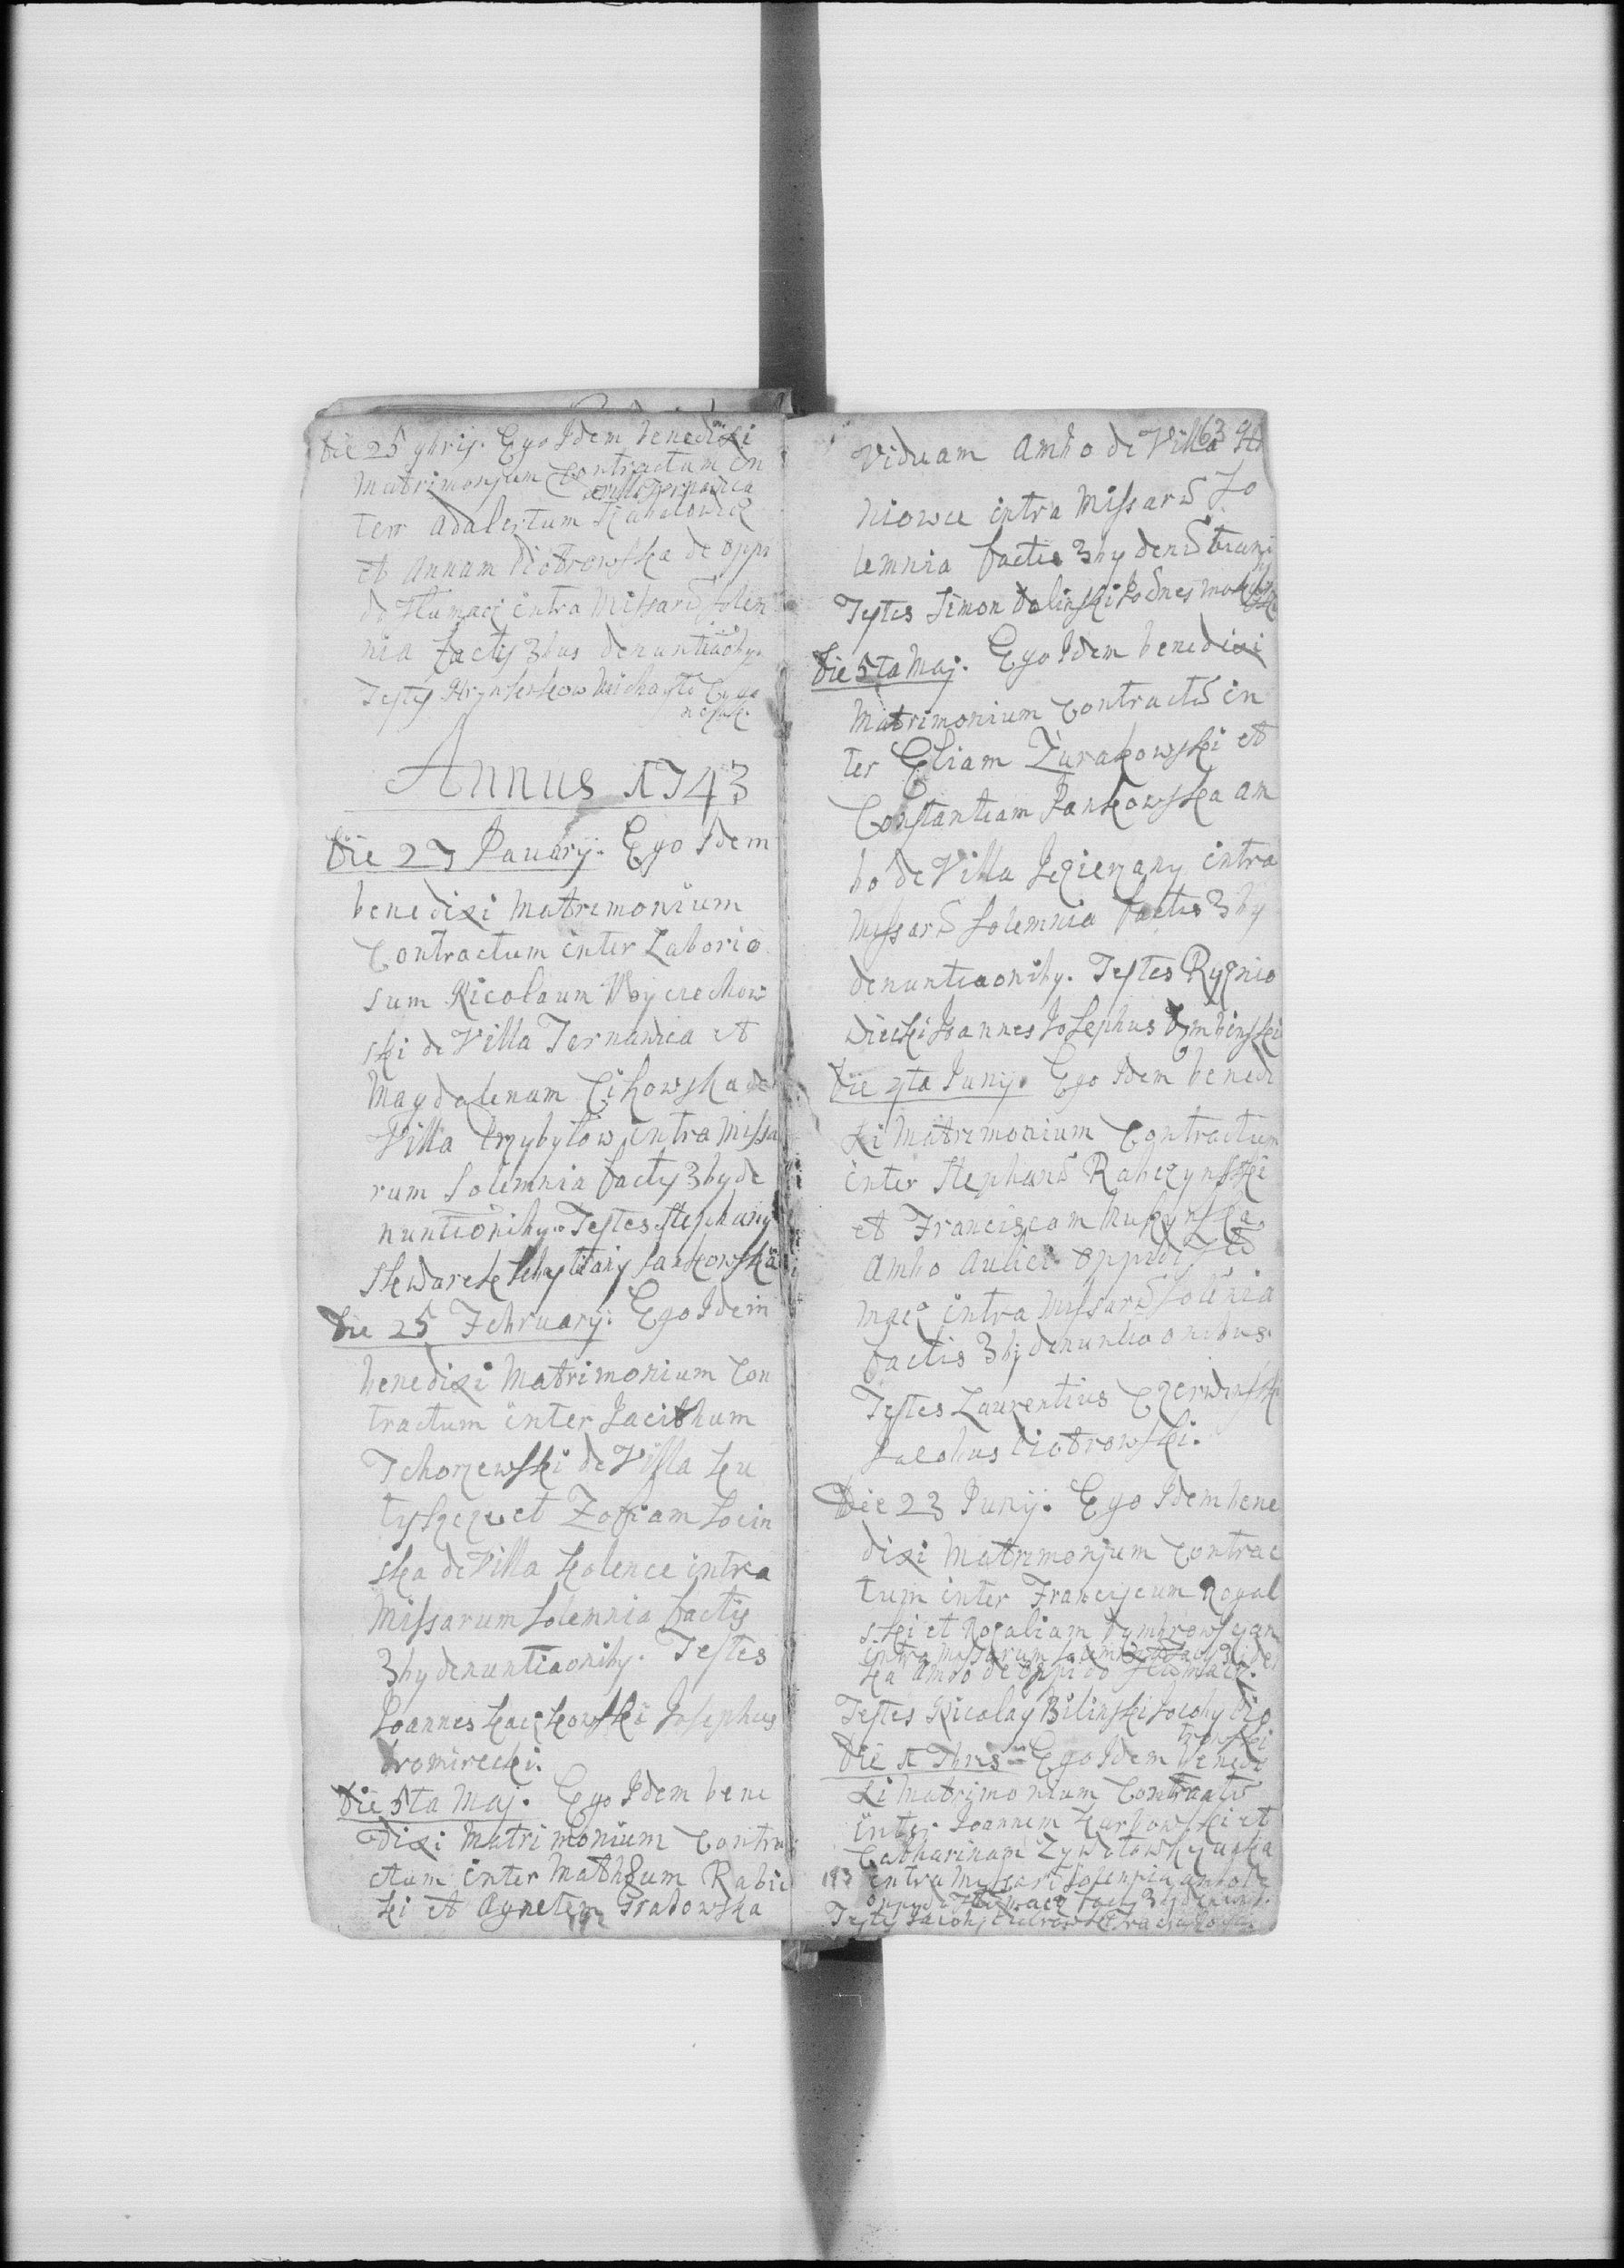 Die 25 9bris. Ego Idem benedixi
Matrimonjum Contractum in
de Villa Ternawica
ter Adalertum
et Annam Piotrowska de Oppi
do Tłumacz intra Missarū solem
nia factis 3bus denuntiaōby.
Testes
Annus 1743
Die 27 Januarij. Ego Idem
benedixi Matrimonium
Contractum inter Laborio
sum Nicolaum Woyciechow
ski de Villa Ternawica et
Magdalenam Cihowska de
Villa Przybyłow intra Missa
rum Solemnia factis 3by de
nuntiōniby. Testes Stephany
Skwarek Sebastiany Jankowski
Die 25 February: Ego Idem
benedixi Matrimonium Con
tractum inter Jacinthum
Tchorzewski de Villa Hu
et Zofiam Socin
ska de Villa Holence intra
Missarum solemnia factis
3by denuntiaoniby. Testes
Joannes Kaczkowski Josephus
Dromirecki.
Die 5ta Maj. Ego Idem bene
dixi Matrimonium Contra
ctum inter Mathæum Rabic
ki et Agnetem Grabowska
192
63
Viduam Ambo de Villa
niowce intra Missarū So
lemnia factis 3by
Testes Simon Dolinski
Die 5ta Maj. Ego Idem benedixi
Matrimonium Contractū in
ter Eliam Żurakowski et
Constantiam Jankowska am
bo de Villa Jezierzany intra
Missarū Solemnia factis 3by
denuntiaoniby. Testes
Joannes Josephus Dembinski
Die 9ta Junij. Ego Idem benedi
xi Matrimonium Contractum
inter Stephanū Rabczynski
et Franciscam
Ambo Aulici Oppidi Tłu
macz intra Missarū Solēnia
factis 3by denuntiaonibus.
Testes Laurentius Czerwinski
Jacobus Piotrowski.
Die 23 Junij. Ego Idem bene
dixi Matrimonjum Contrac
tum inter Franciscum Rogal
ski et Rozaliam
intra Missarum
ka ambo de Oppido Tłumacz.
Testes Nicolay Bilinski Jacoby Pio
trowski
Die 1 7bris Ego Idem benedi
xi Matrimonium Contractū
inter Joannem Karpowski et
Catharinam
193 intra Missarū Solennia ambo de
oppido Tłumacz factis 3by
Testes Jacoby Piotrowski